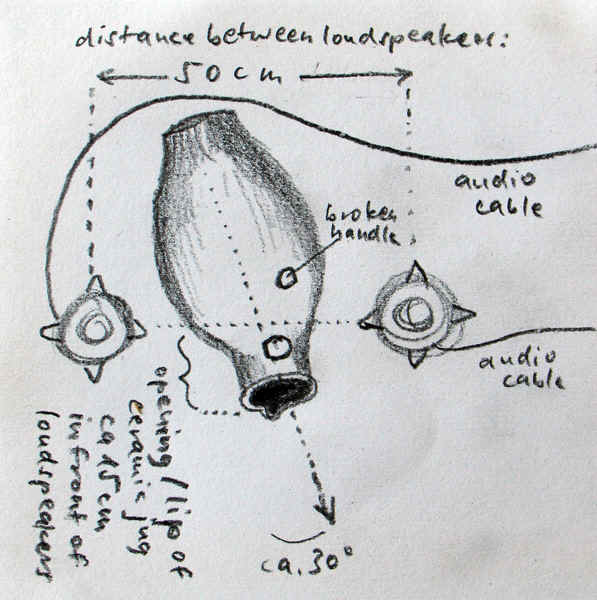 distance between loudspeakers:
50 cm
audio
cable
broken
handle
audio
cable
opening / lip of
ceramic jug
ca 15 cm
in front of
loudspeakers
ca. 30°